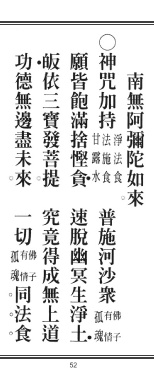 南無阿彌陀如來。
◯神咒加持淨法食法施食甘露水 普施河沙眾佛子有情孤魂
願皆飽滿捨慳貪 速脫幽冥生淨土
皈依三寶發菩提 究竟得成無上道
功德無邊盡未來。 一切佛子有情孤魂同法食。。。
52